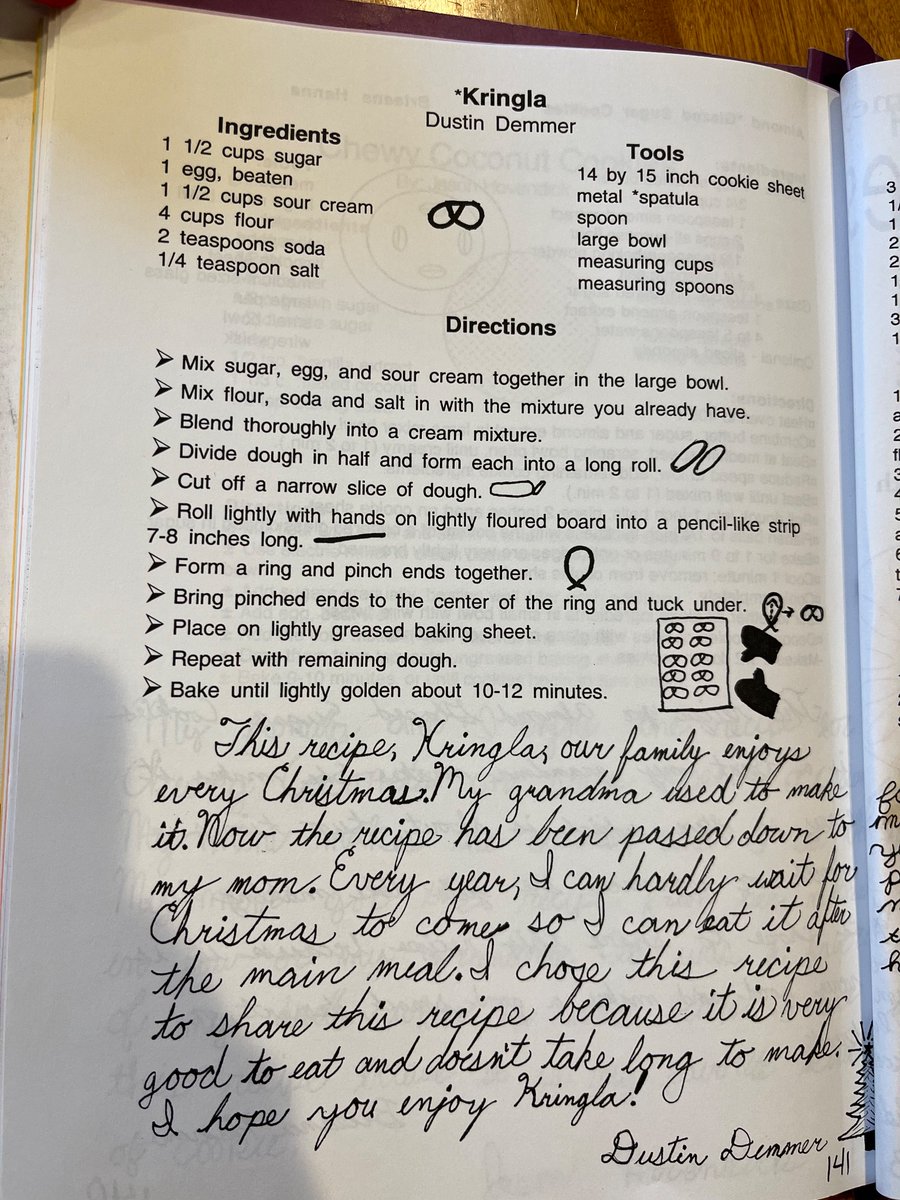 *Kringla
Dustin Demmer
Ingredients
1 1/2 cups sugar
1 egg, beaten
1 1/2 cups sour cream
4 cups flour
2 teaspoons soda
1/4 teaspoon salt
Tools
14 by 15 inch cookie sheet
metal *spatula
spoon
large bowl
measuring cups
measuring spoons
Directions
➢ Mix sugar, egg, and sour cream together in the large bowl.
➢ Mix flour, soda and salt in with the mixture you already have.
➢ Blend thoroughly into a cream mixture.
➢ Divide dough in half and form each into a long roll.
➢ Cut off a narrow slice of dough.
➢ Roll lightly with hands on lightly floured board into a pencil-like strip
7-8 inches long.
➢ Form a ring and pinch ends together.
➢ Bring pinched ends to the center of the ring and tuck under.
➢ Place on lightly greased baking sheet.
➢ Repeat with remaining dough.
➢ Bake until lightly golden about 10-12 minutes.
This recipe, Kringla, our family enjoys
every Christmas. My grandma used to make
it. Now the recipe has been passed down to
my mom. Every year, I can hardly wait for
Christmas to come so I can eat it after
the main meal. I chose this recipe
to share this recipe because it is very
good to eat and doesn't take long to make.
I hope you enjoy Kringla!
Dustin Demmer
141